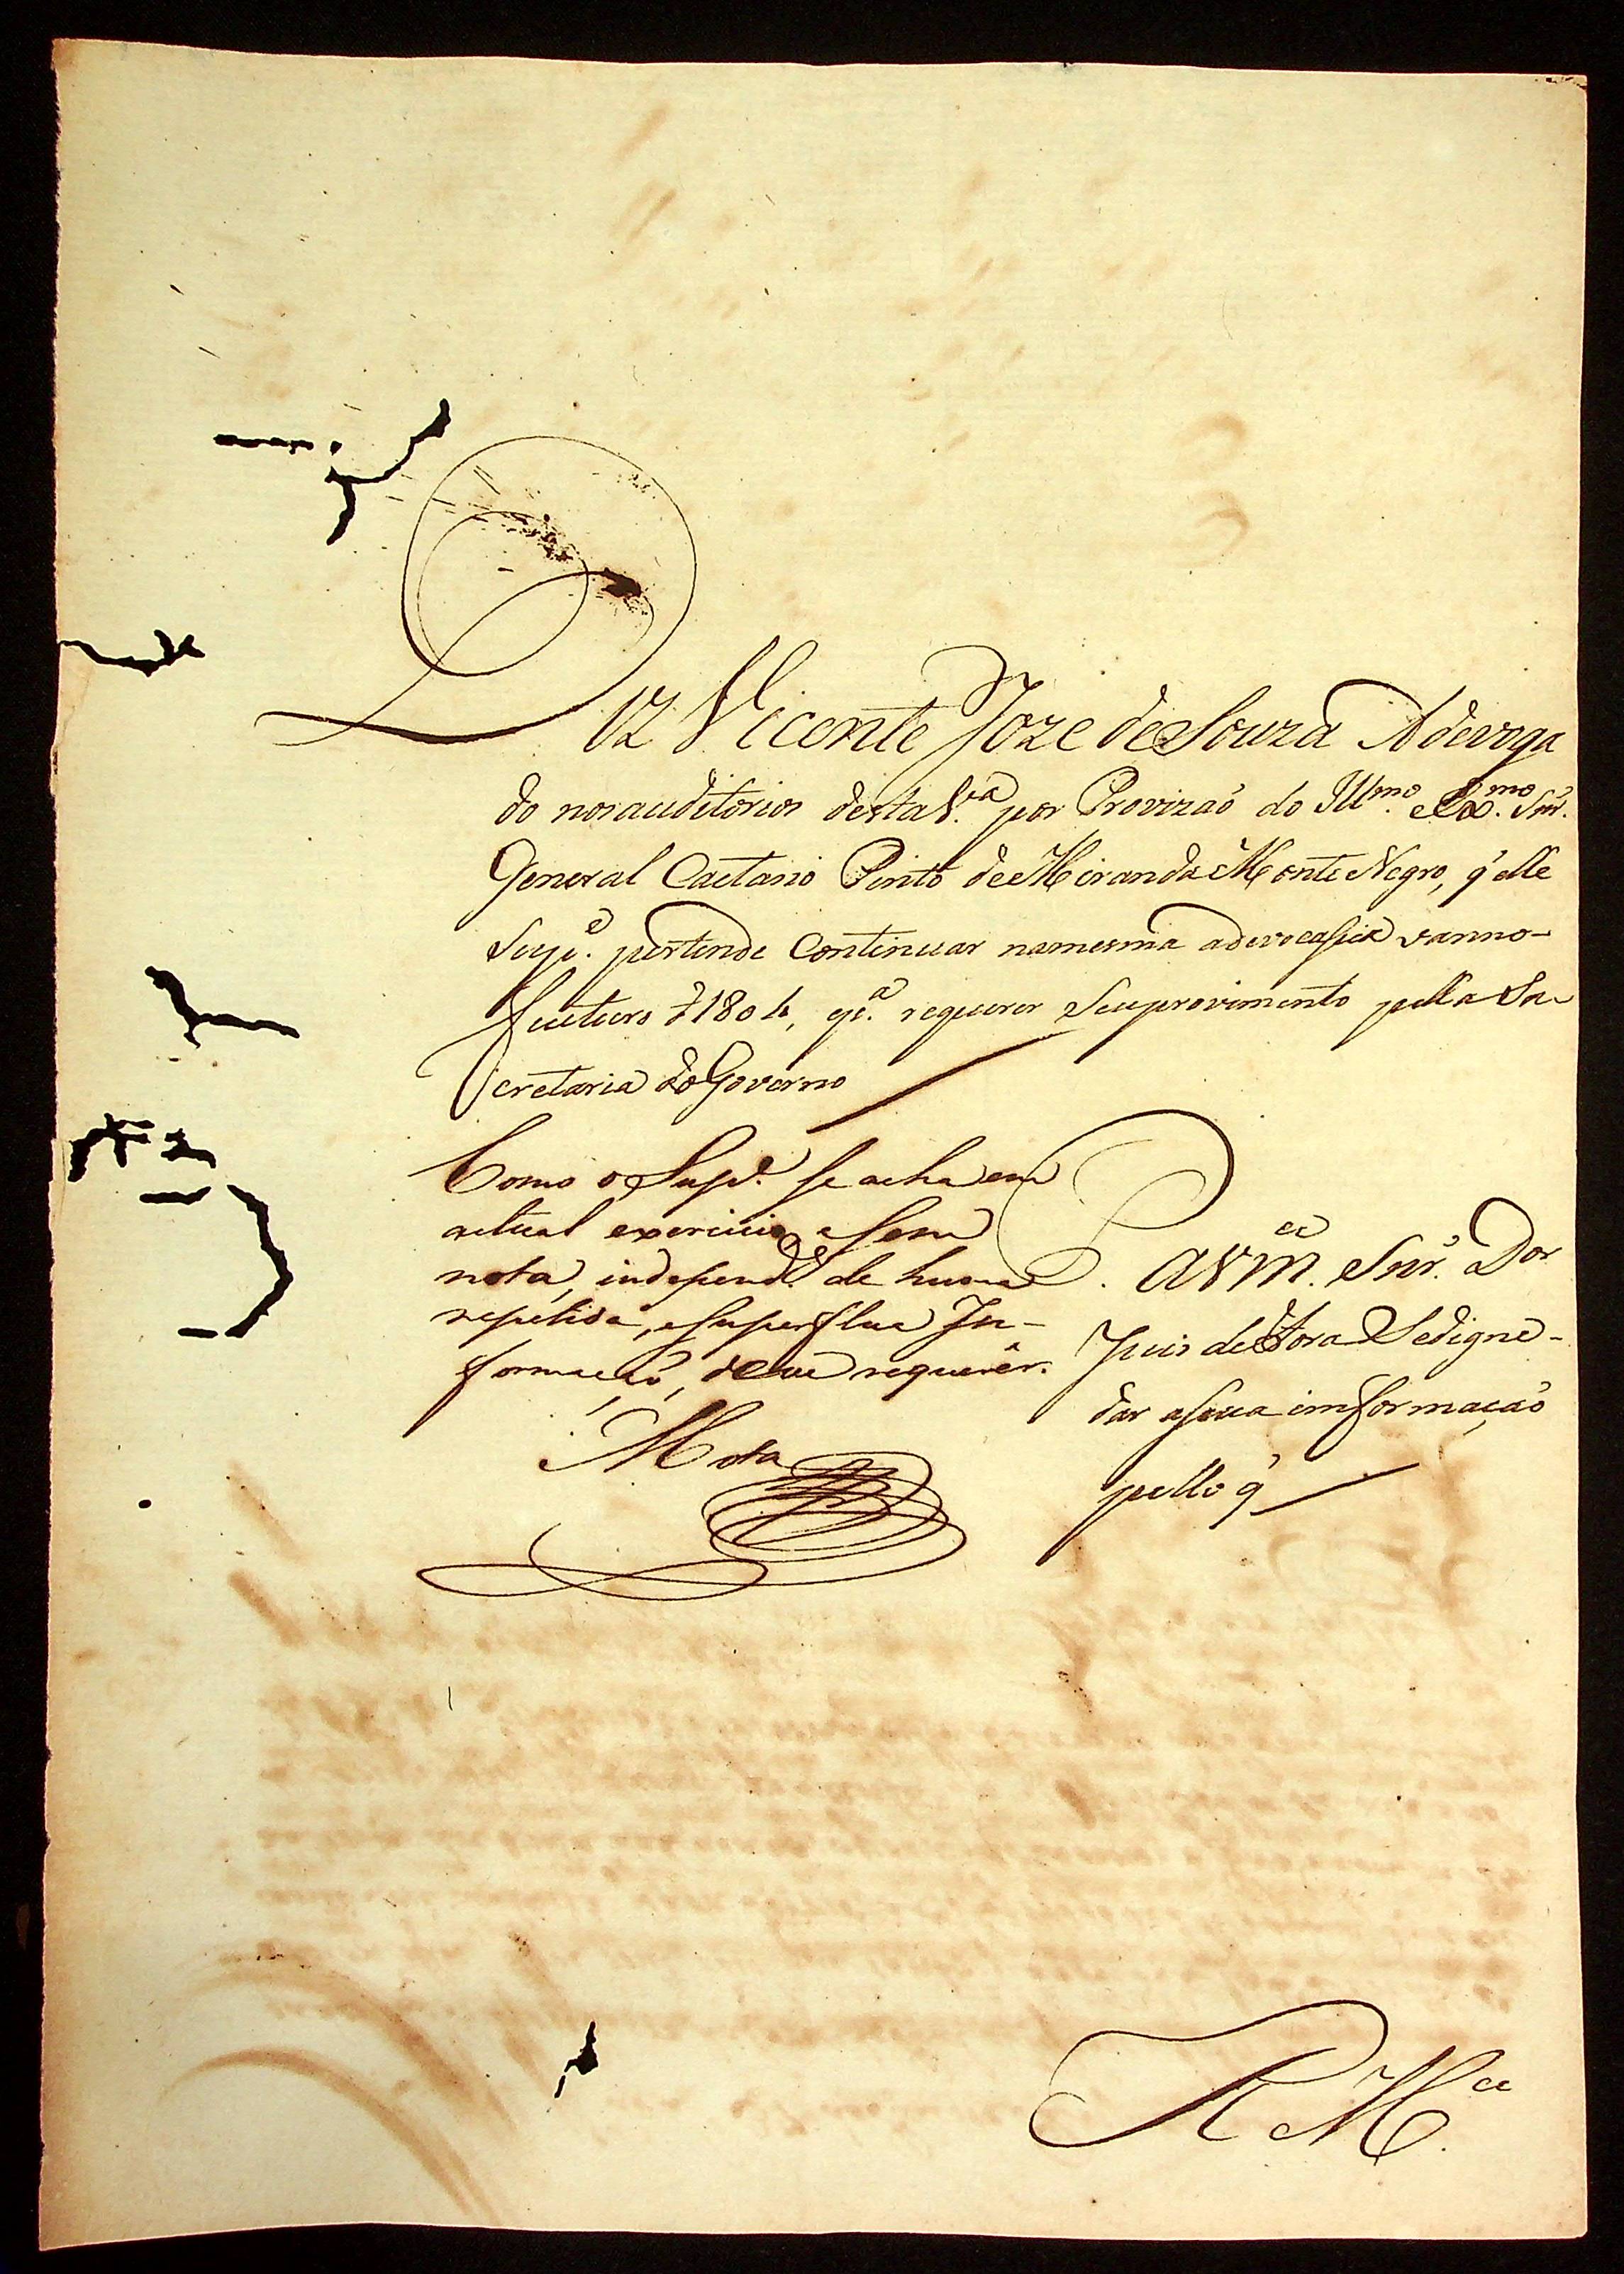 Diz Vicente Joze de Souza Adevoga
do nos auditorios desta V.ª por Provizaõ do Ill.mo e Ex.mo Snr.
General Caetano Pinto de Miranda Monte Negro, q̃ elle
Sup.e pertende Continuar na mesma adevocasia o anno
futuro d 1804, p.ª requerer Seu provimento pella Se
cretaria do Governo
Como o Sup.e se acha em
actual exercicio, e sem
nota, independ.e de huma
repetida, e superflua In-
formação, deve requerêr.
Mota
P. a Vm.ce Snr. Dor
Juis de Fora Se digne
dar a sua imformaçaõ
pello q̃
R M.ce